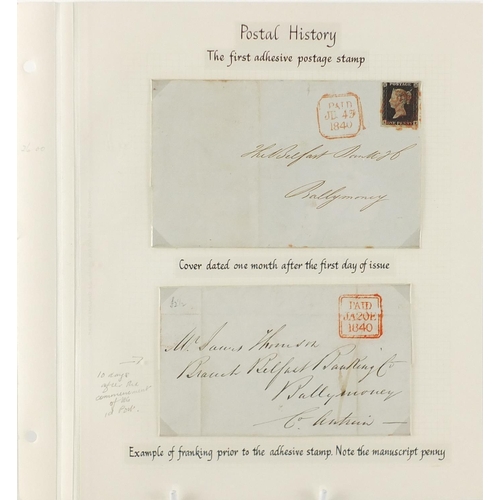 Postal History
The first adhesive postage stamp
PAID
1840
POSTAGE
ONE PENNY
The Belfast
Ballymoney
Cover dated one month after the first day of issue
PAID
JA20E
1840
Mr James Thomson
Branch Belfast Banking Co
Ballymoney
Co Antrim
10 days
after the
commencement
of the
Post.
Example of franking prior to the adhesive stamp. Note the manuscript penny